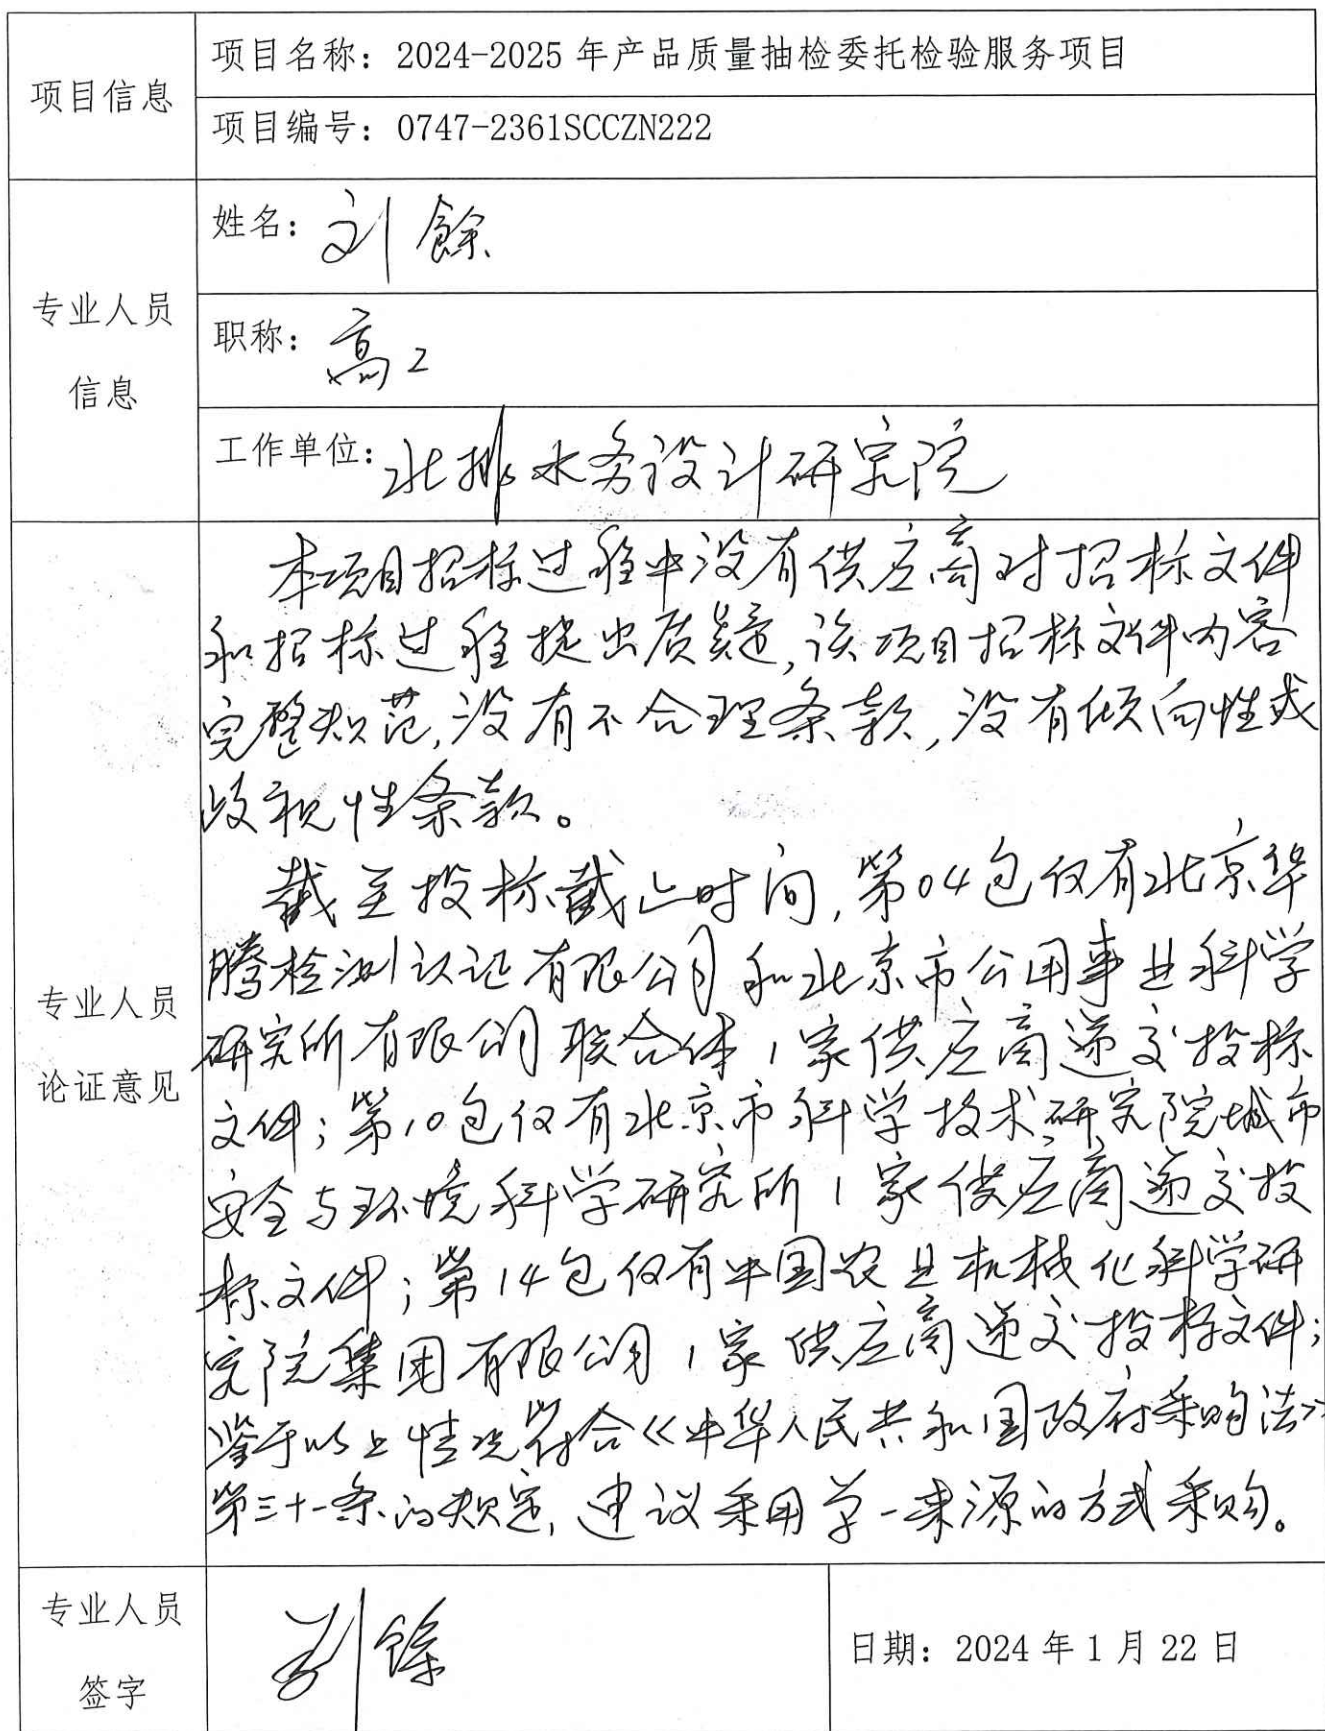 项目信息
项目名称：2024-2025 年产品质量抽检委托检验服务项目
项目编号：0747-2361SCCZN222
专业人员
信息
姓名：刘餘
职称：高工
工作单位：北排水务设计研究院
专业人员
论证意见
本项目招标过程中没有供应商对招标文件
和招标过程提出质疑，该项目招标文件内容
完整规范，没有不合理条款，没有倾向性或
歧视性条款。
截至投标截止时间，第04包仅有北京华
腾检测认证有限公司和北京市公用事业科学
研究所有限公司联合体1家供应商递交投标
文件；第10包仅有北京市科学技术研究院城市
安全与环境科学研究所1家供应商递交投
标文件；第14包仅有中国农业机械化科学研
究院集团有限公司1家供应商递交投标文件；
鉴于以上情况符合《中华人民共和国政府采购法》
第三十一条的规定，建议采用单一来源的方式采购。
专业人员
签字
刘餘
日期：2024 年 1 月 22 日